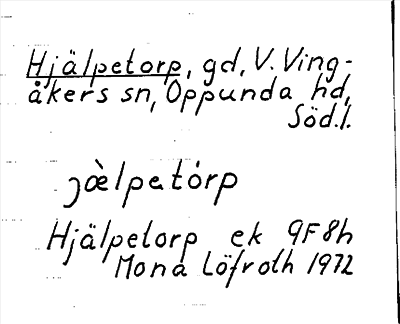 Hjälpetorp, gd, V. Ving-
åkers sn, Oppunda hd,
Söd.l.
jæ̀lpatɷrp
Hjälpetorp ek 9F8h
Mona Löfroth 1972